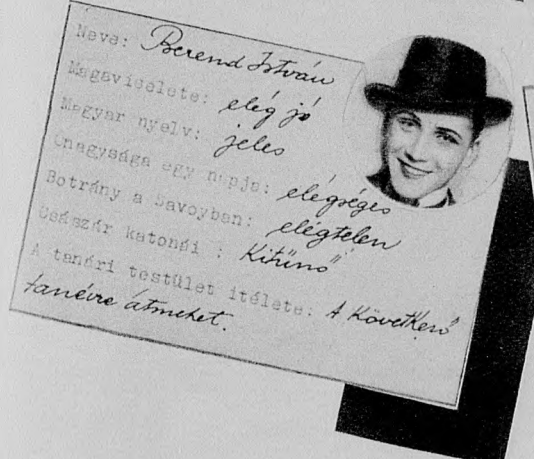 Neve: Berend István
Magaviselete: elég jó
Magyar nyelv: jeles
Őnagysága egy napja: elégséges
Botrány a Savoyban: elégtelen
Császár katonái : Kitünő
A tanári testület itélete: A következő
tanévre átmehet.